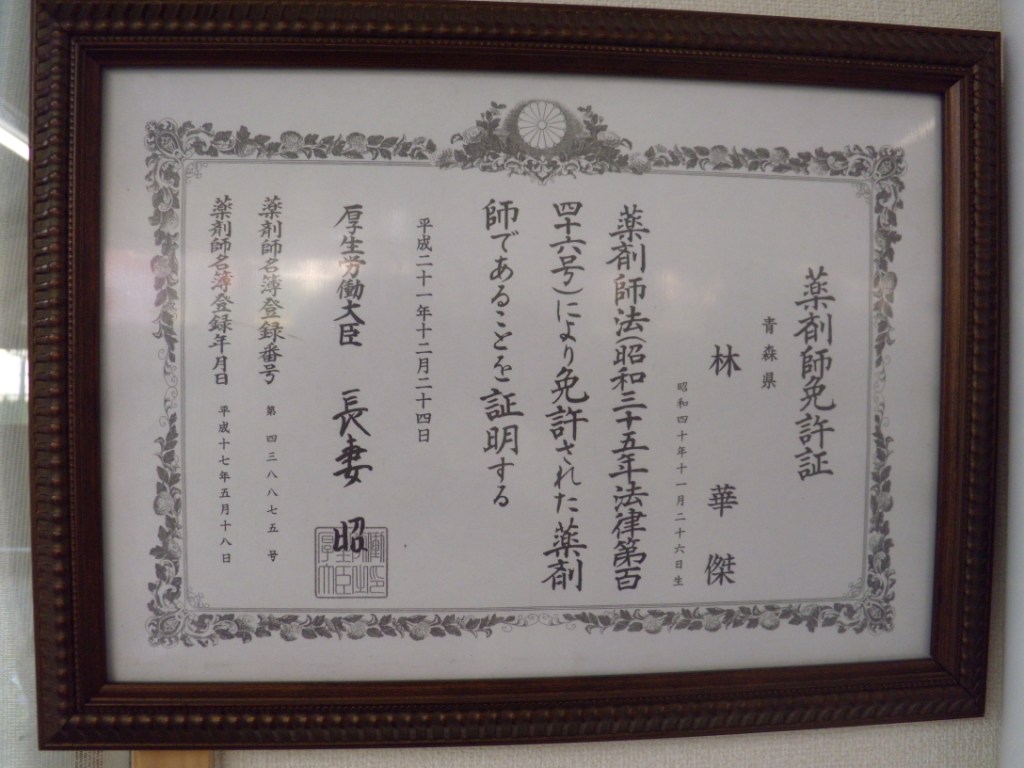 薬剤師免許証
青森県
林 華 傑
昭和四十年十一月二十六日生
薬剤師法(昭和三十五年法律第百
四十六号)により免許された薬剤
師であることを証明する
平成二十一年十二月二十四日
厚生労働大臣 長妻 昭
薬剤師名簿登録番号 第 四三八八七五 号
薬剤師名簿登録年月日 平成十七年五月十八日